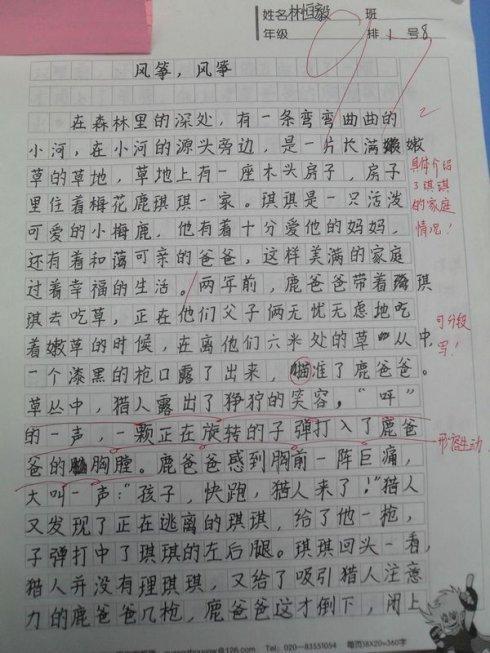 姓名林恒毅 班
年级 排1号8
风筝，风筝
在森林里的深处，有一条弯弯曲曲的
小河，在小河的源头旁边，是一片长满嫩
草的草地，草地上有一座木头房子，房子
里住着梅花鹿琪琪一家。琪琪是一只活泼
可爱的小梅鹿，他有着十分爱他的妈妈，
还有着和蔼可亲的爸爸，这样美满的家庭
过着幸福的生活。两年前，鹿爸爸带着琪
琪去吃草，正在他们父子俩无忧无虑地吃
着嫩草的时候，在离他们六米处的草从中
一个漆黑的枪口露了出来，瞄准了鹿爸爸。
草丛中，猎人露出了狰狞的笑容，“呯”
的一声，一颗正在旋转的子弹打入了鹿爸
爸的胸膛。鹿爸爸感到胸前一阵巨痛，
大叫一声：“孩子，快跑，猎人来了！”猎人
又发现了正在逃离的琪琪，给了他一枪，
子弹打中了琪琪的左后腿。琪琪回头一看，
猎人并没有理琪琪，又给了吸引猎人注意
力的鹿爸爸几枪，鹿爸爸这才倒下，闭上
具体介绍
了琪琪
的家庭
情况！
可分段
写！
形容生动
Tel: 020—83551054 每页18X20=360字